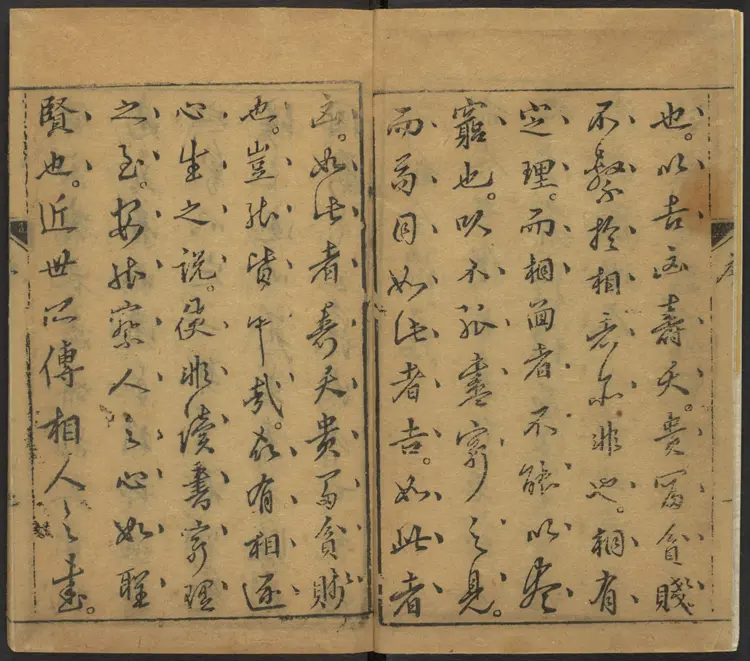 也。以吉凶壽夭。貴富貧賤
不繫於相者亦非也。相有
定理。而相面者不能以盡
窮也。以不盡窮之見。
而目如此者吉。如此者
凶。如此者壽夭貴富貧賤
也。豈能中哉。故有相逐
心生之說。使非讀書窮理
之至。安能察人之心如聖
賢也。近世所傳相人之書。